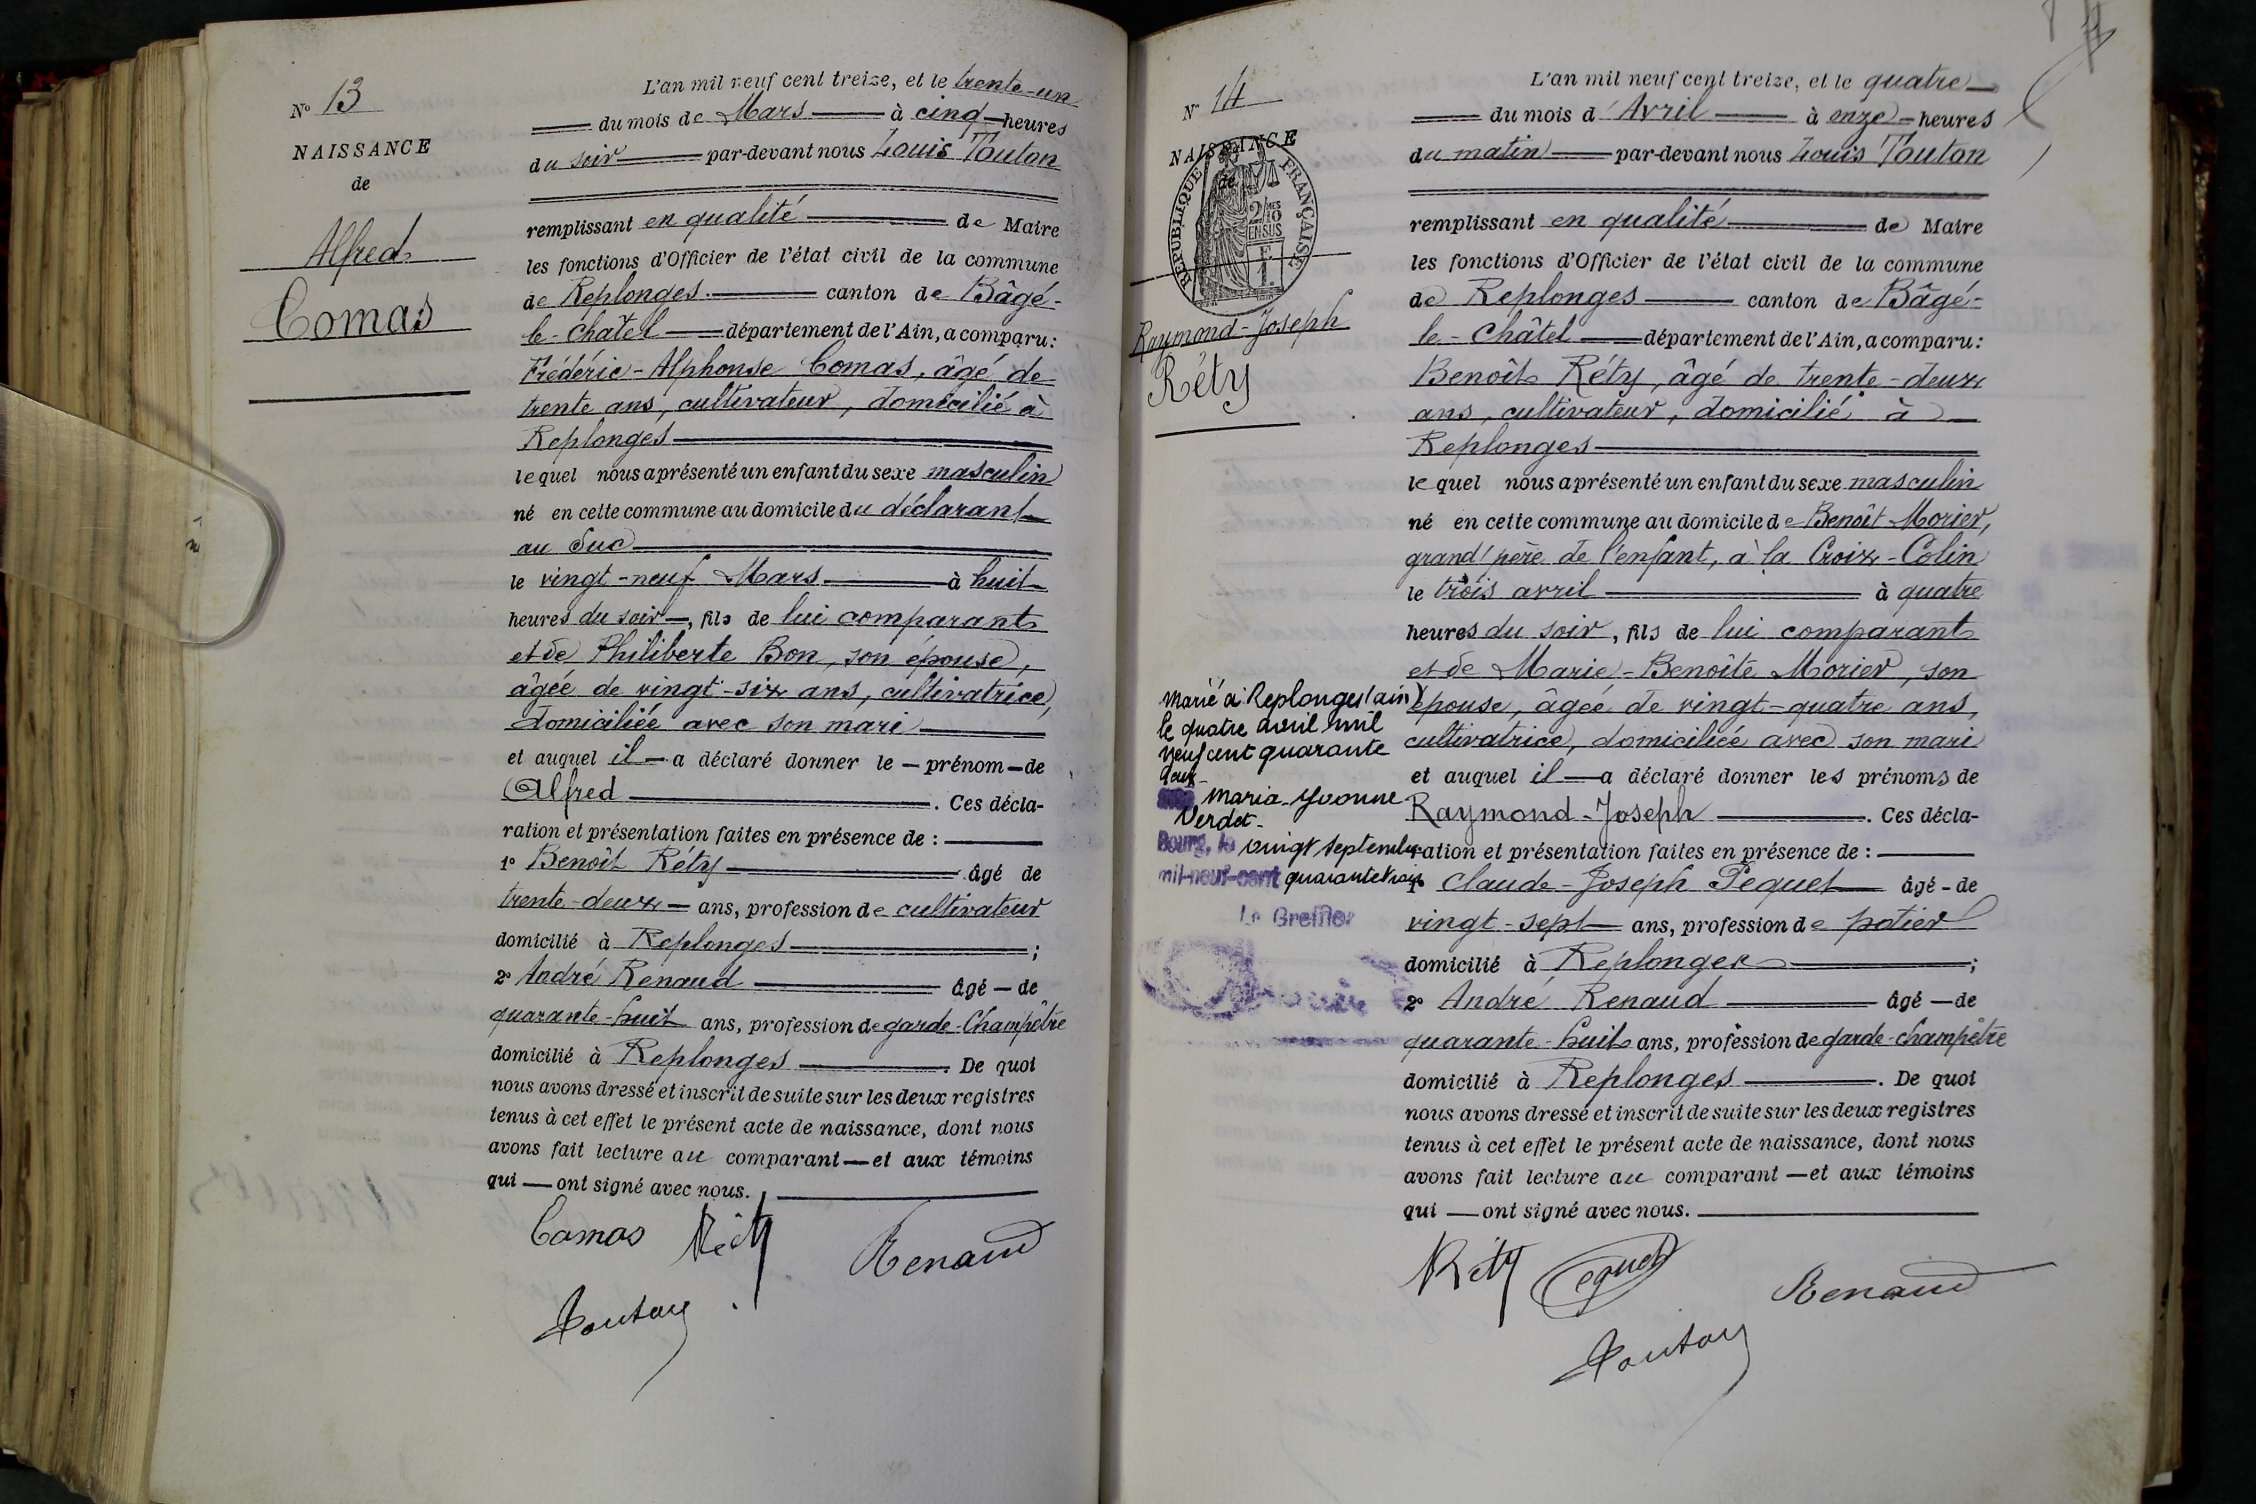 N° 13
NAISSANCE
de
Alfred
Comas
L'an mil neuf cent treize, et le trente-un
du mois de Mars à cinq heures
du soir par-devant nous Louis Touton
remplissant en qualité de Maire
les fonctions d'Officier de l'état civil de la commune
de Replonges canton de Bâgé-
le-Châtel département de l'Ain, a comparu:
Frédéric-Alphonse Comas, âgé de
trente ans, cultivateur, domicilié à
Replonges
lequel nous a présenté un enfant du sexe masculin
né en cette commune au domicile du déclarant
au Suc
le vingt-neuf Mars à huit
heures du soir, fils de lui comparant
et de Philiberte Bon, son épouse,
âgée de vingt-six ans, cultivatrice,
domiciliée avec son mari
et auquel il a déclaré donner le prénom de
Alfred. Ces décla-
ration et présentation faites en présence de :
1° Benoît Réty âgé de
trente-deux ans, profession de cultivateur
domicilié à Replonges ;
2° André Renaud âgé de
quarante-huit ans, profession de garde-Champêtre
domicilié à Replonges. De quoi
nous avons dressé et inscrit de suite sur les deux registres
tenus à cet effet le présent acte de naissance, dont nous
avons fait lecture au comparant et aux témoins
qui ont signé avec nous.
Comas Réty Renaud
Touton
N° 14
NAISSANCE
de
REPUBLIQUE FRANÇAISE
2/10 EN SUS
1 F
Raymond-Joseph
Réty
L'an mil neuf cent treize, et le quatre
du mois d'Avril à onze heures
du matin par-devant nous Louis Touton
remplissant en qualité de Maire
les fonctions d'Officier de l'état civil de la commune
de Replonges canton de Bâgé-
le-Châtel département de l'Ain, a comparu:
Benoît Réty, âgé de trente-deux
ans, cultivateur, domicilié à
Replonges
lequel nous a présenté un enfant du sexe masculin
né en cette commune au domicile de Benoît Morier,
grand'père de l'enfant, à la Croix-Colin
le trois avril à quatre
heures du soir, fils de lui comparant
et de Marie-Benoîte Morier, son
épouse, âgée de vingt-quatre ans,
cultivatrice, domiciliée avec son mari
et auquel il a déclaré donner les prénoms de
Raymond-Joseph. Ces décla-
ration et présentation faites en présence de :
1° Claude-Joseph Pequet âgé de
vingt-sept ans, profession de potier
domicilié à Replonges ;
2° André Renaud âgé de
quarante-huit ans, profession de garde-champêtre
domicilié à Replonges. De quoi
nous avons dressé et inscrit de suite sur les deux registres
tenus à cet effet le présent acte de naissance, dont nous
avons fait lecture au comparant et aux témoins
qui ont signé avec nous.
Réty Pequet Renaud
Touton
Marié à Replonges (ain)
le quatre avril mil
neuf cent quarante
deux
Maria-Yvonne
Verdet
Bourg, le vingt septembre
mil-neuf-cent quarante trois
Le Greffier